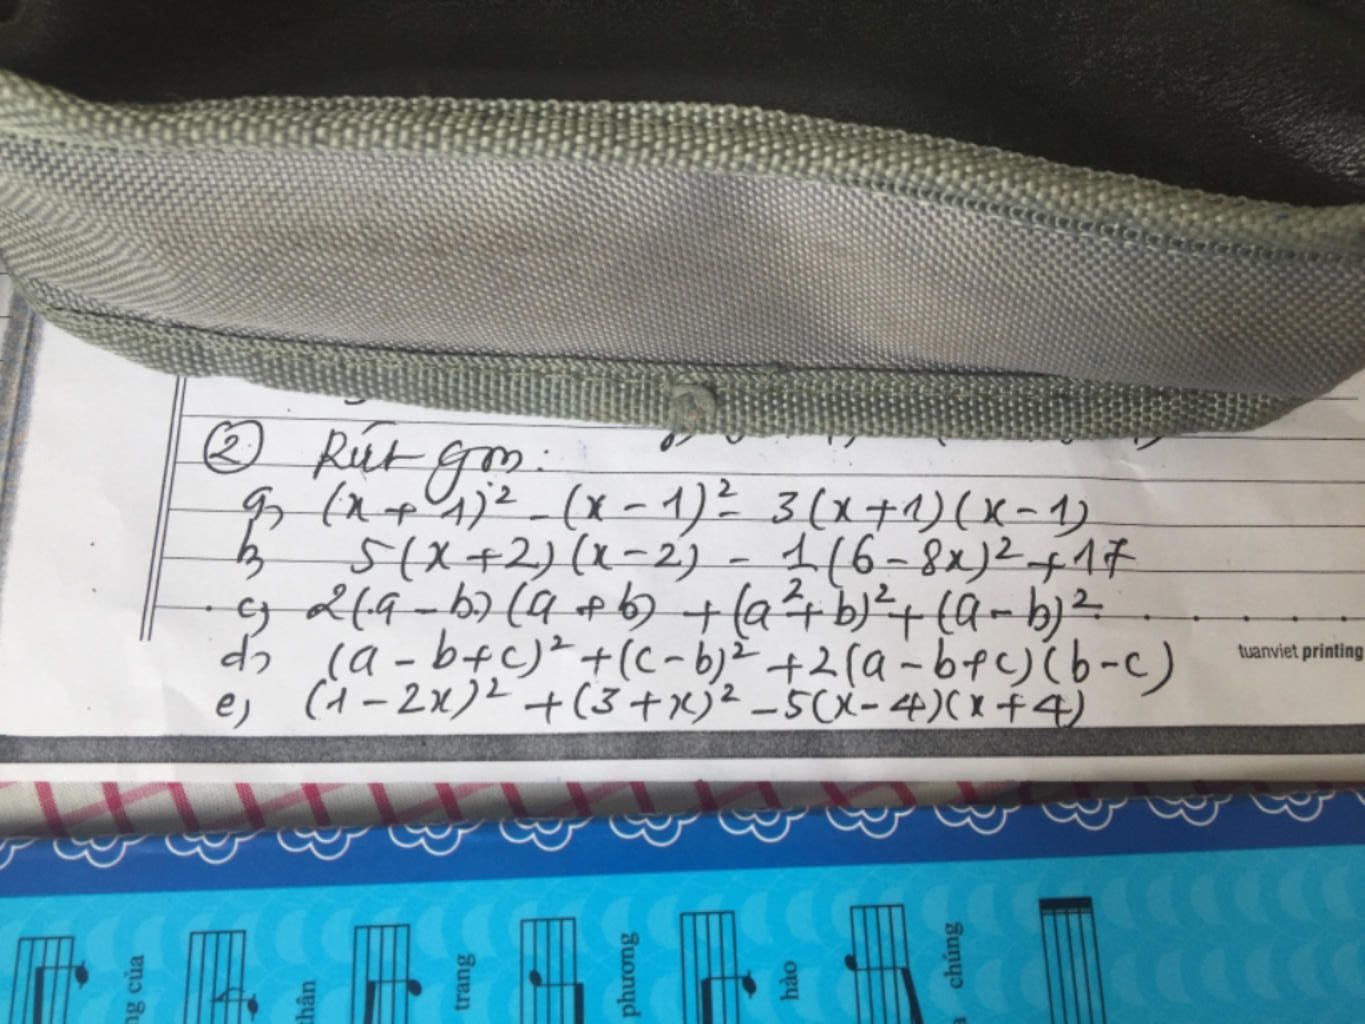 ② Rút gọn:
a) (x + 1)² - (x - 1)² - 3(x+1)(x-1)
b 5(x+2)(x-2) - 1(6-8x)² + 17
c) 2(a-b)(a+b) + (a²+b)² + (a-b)²
d) (a-b+c)² + (c-b)² + 2(a-b+c)(b-c)
tuanviet printing
e) (1-2x)² + (3+x)² - 5(x-4)(x+4)
ng của
thân
trang
phương
hào
chúng